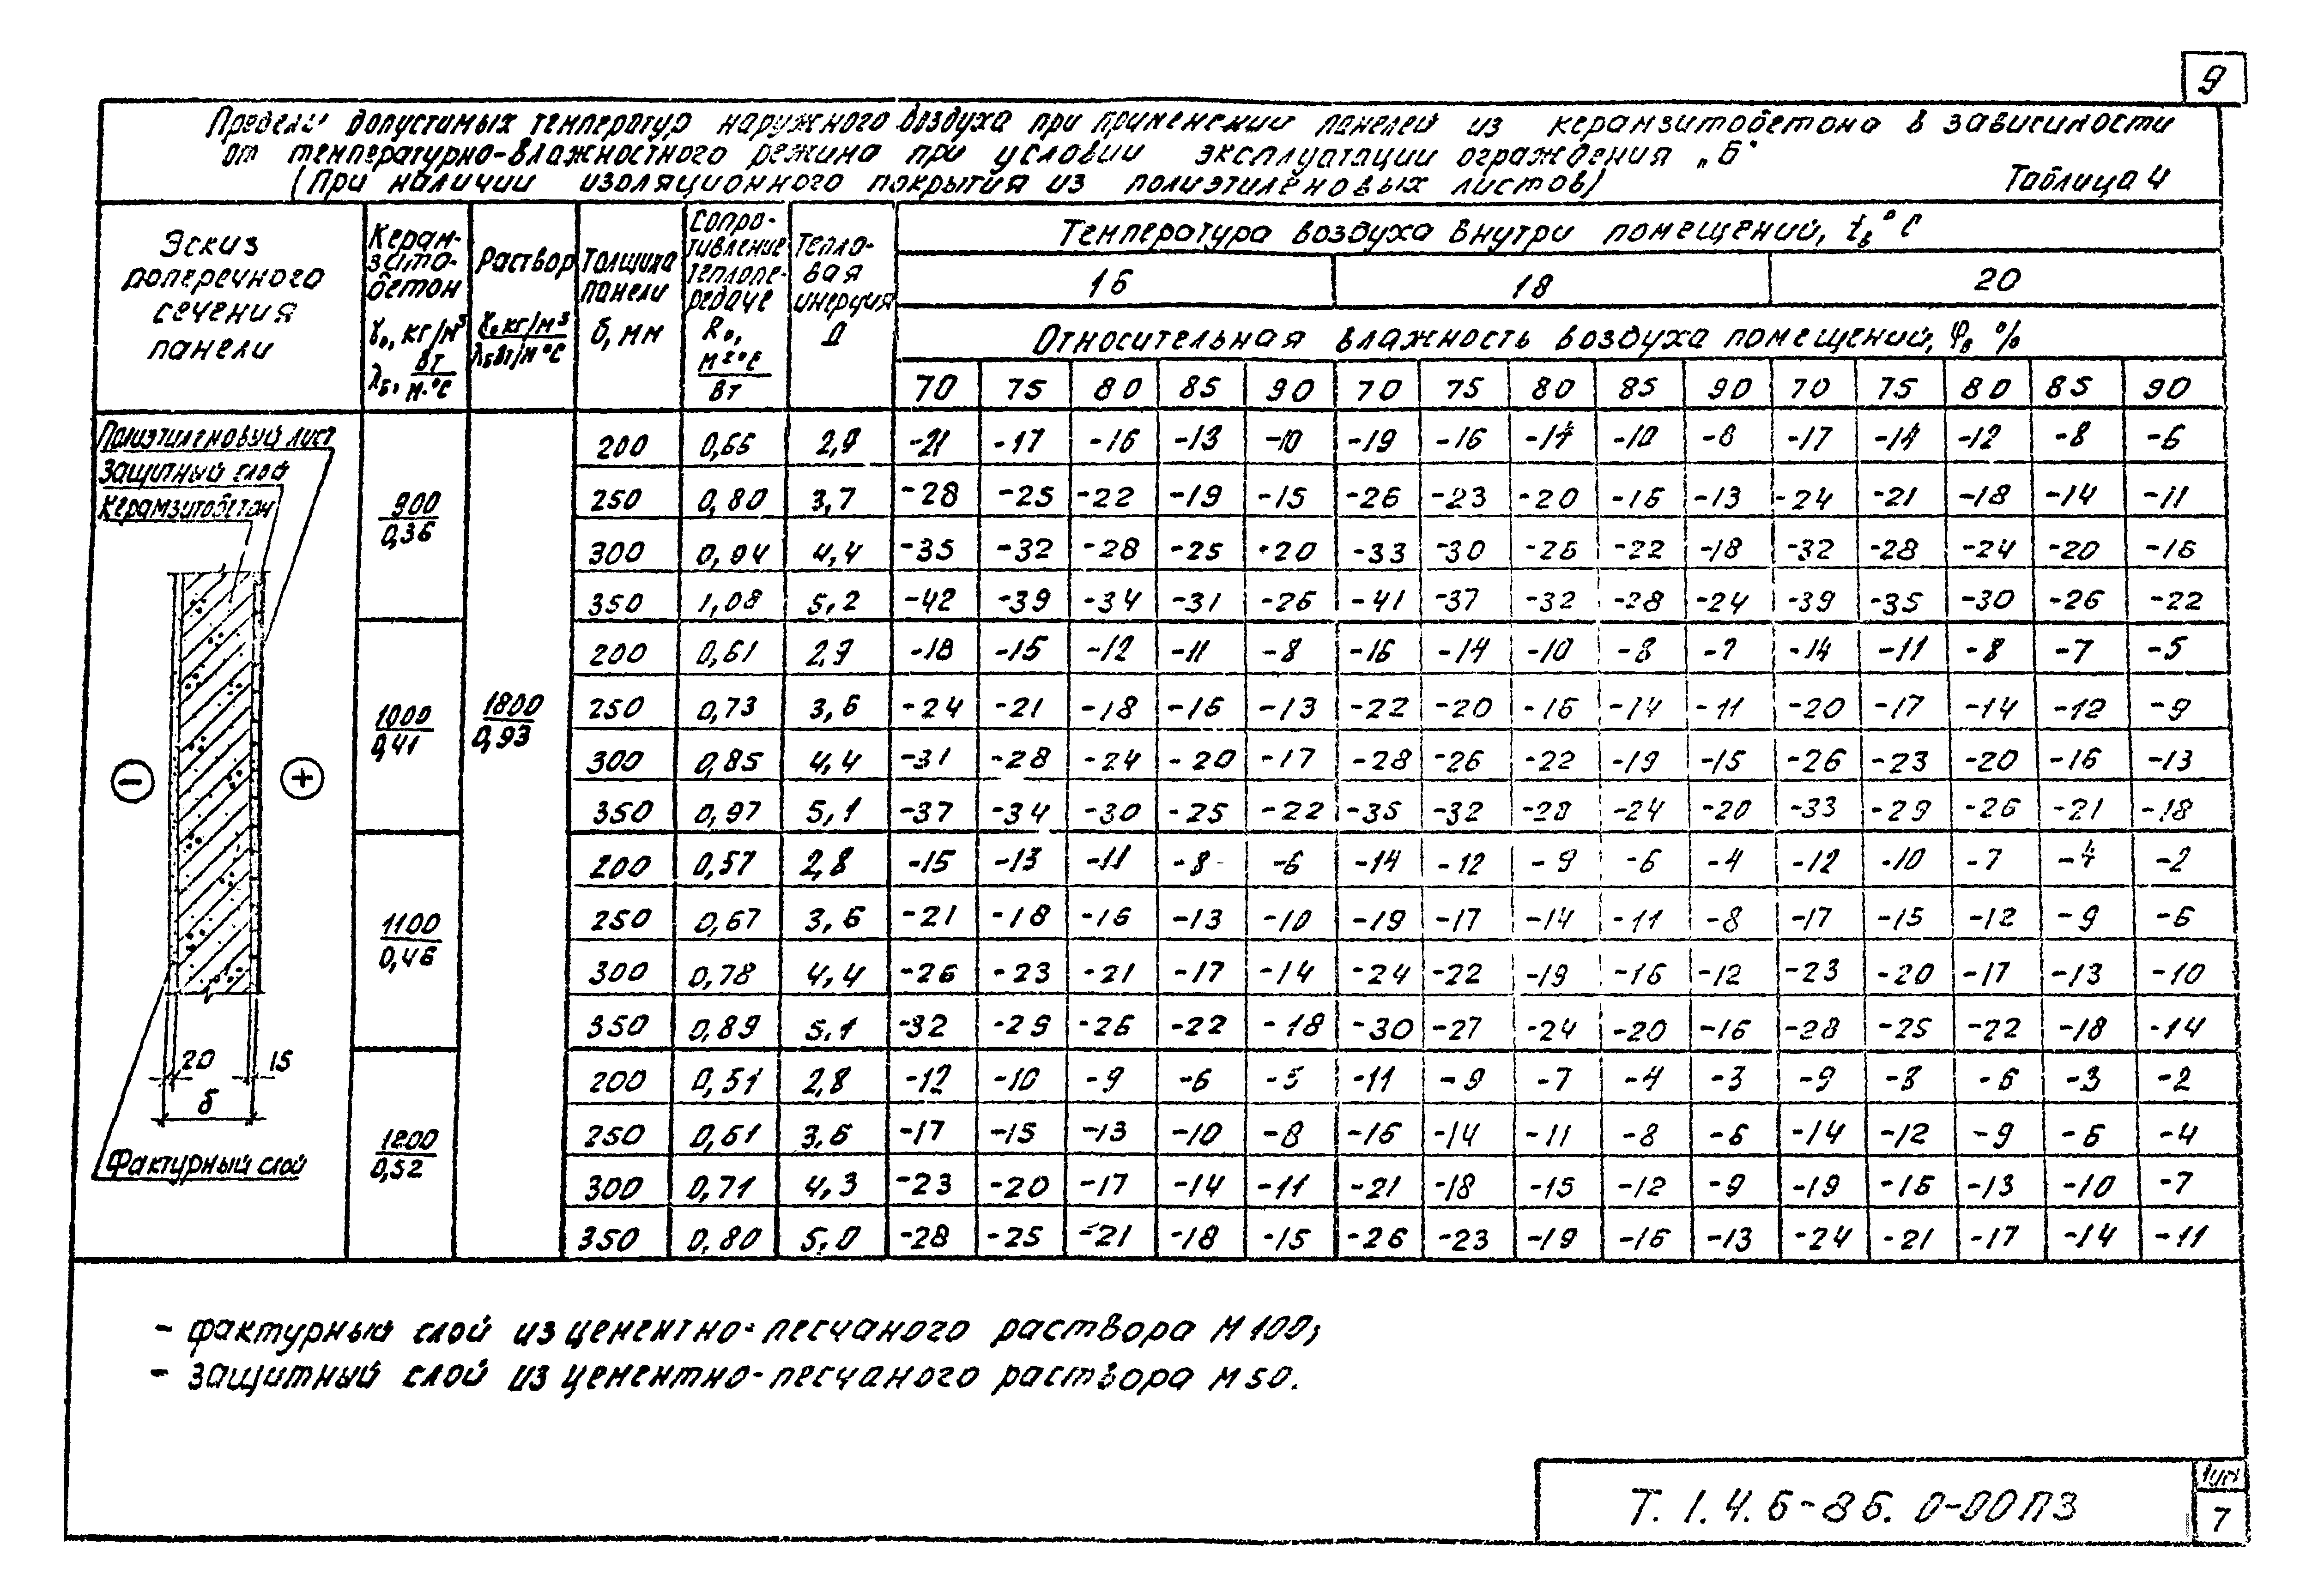 9
Пределы допустимых температур наружного воздуха при применении панелей из керамзитобетона в зависимости
от температурно-влажностного режима при условии эксплуатации ограждения „Б"
(При наличии изоляционного покрытия из полиэтиленовых листов)
Таблица 4
Эскиз поперечного сечения панели
Керам-зито-бетон γ₀, кг/м³ λБ, Вт/м·°С
Раствор γ₀ кг/м³ / λБ Вт/м°С
Толщина панели δ, мм
Сопро-тивление теплопе-редаче R₀, м²°С/Вт
Тепло-вая инерция Д
Температура воздуха внутри помещений, tв °С
16 18 20
Относительная влажность воздуха помещений, φв %
70 75 80 85 90 70 75 80 85 90 70 75 80 85 90
Полиэтиленовый лист
Защитный слой
Керамзитобетон
900/0,36
1800/0,93
200 0,66 2,9 -21 -17 -16 -13 -10 -19 -16 -14 -10 -8 -17 -14 -12 -8 -6
250 0,80 3,7 -28 -25 -22 -19 -15 -26 -23 -20 -16 -13 -24 -21 -18 -14 -11
300 0,94 4,4 -35 -32 -28 -25 -20 -33 -30 -26 -22 -18 -32 -28 -24 -20 -16
350 1,08 5,2 -42 -39 -34 -31 -26 -41 -37 -32 -28 -24 -39 -35 -30 -26 -22
1000/0,41
200 0,61 2,9 -18 -15 -12 -11 -8 -16 -14 -10 -8 -7 -14 -11 -8 -7 -5
250 0,73 3,6 -24 -21 -18 -16 -13 -22 -20 -16 -14 -11 -20 -17 -14 -12 -9
300 0,85 4,4 -31 -28 -24 -20 -17 -28 -26 -22 -19 -15 -26 -23 -20 -16 -13
350 0,97 5,1 -37 -34 -30 -25 -22 -35 -32 -28 -24 -20 -33 -29 -26 -21 -18
1100/0,46
200 0,57 2,8 -15 -13 -11 -8 -6 -14 -12 -9 -6 -4 -12 -10 -7 -4 -2
250 0,67 3,6 -21 -18 -16 -13 -10 -19 -17 -14 -11 -8 -17 -15 -12 -9 -6
300 0,78 4,4 -26 -23 -21 -17 -14 -24 -22 -19 -16 -12 -23 -20 -17 -13 -10
350 0,89 5,1 -32 -29 -26 -22 -18 -30 -27 -24 -20 -16 -28 -25 -22 -18 -14
1200/0,52
200 0,51 2,8 -12 -10 -9 -6 -5 -11 -9 -7 -4 -3 -9 -8 -6 -3 -2
250 0,61 3,6 -17 -15 -13 -10 -8 -16 -14 -11 -8 -6 -14 -12 -9 -6 -4
300 0,71 4,3 -23 -20 -17 -14 -11 -21 -18 -15 -12 -9 -19 -16 -13 -10 -7
350 0,80 5,0 -28 -25 -21 -18 -15 -26 -23 -19 -16 -13 -24 -21 -17 -14 -11
− +
20 15
δ
Фактурный слой
- фактурный слой из цементно-песчаного раствора М100;
- защитный слой из цементно-песчаного раствора М50.
Т. 1.4.6-86. 0-00ПЗ
Лист
7